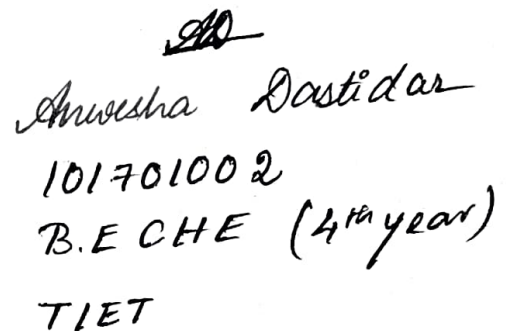 Anwesha Dastidar
101701002
B.E CHE (4th year)
TIET